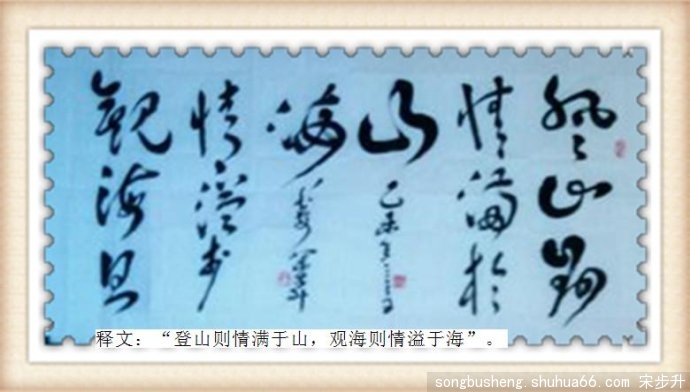 登山則
情滿於
山
乙未年
觀海則
情溢於
海
宋步升
释文：“登山则情满于山，观海则情溢于海”。
songbusheng.shuhua66.com 宋步升